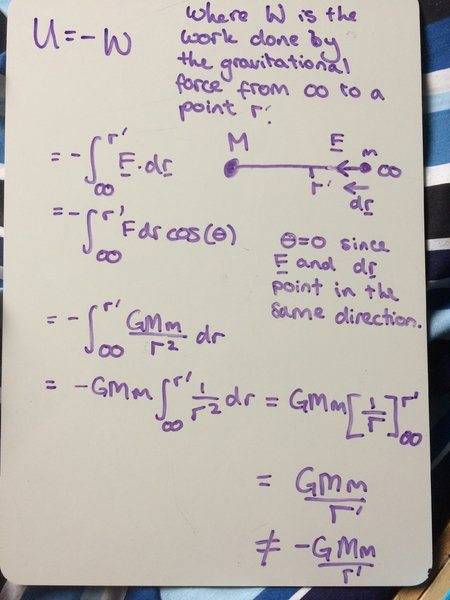 U = -W
where W is the
work done by
the gravitational
force from ∞ to a
point r'.
= -∫_∞^{r'} F·dr
M F m ∞
r' dr
= -∫_∞^{r'} F dr cos(θ)
θ=0 since
F and dr
point in the
same direction.
= -∫_∞^{r'} GMm/r² dr
= -GMm ∫_∞^{r'} 1/r² dr = GMm [1/r]_∞^{r'}
= GMm/r'
≠ -GMm/r'